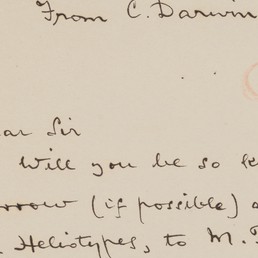 From C. Darwin
Sir
Will you be so
(if possible)
Heliotypes, to M.